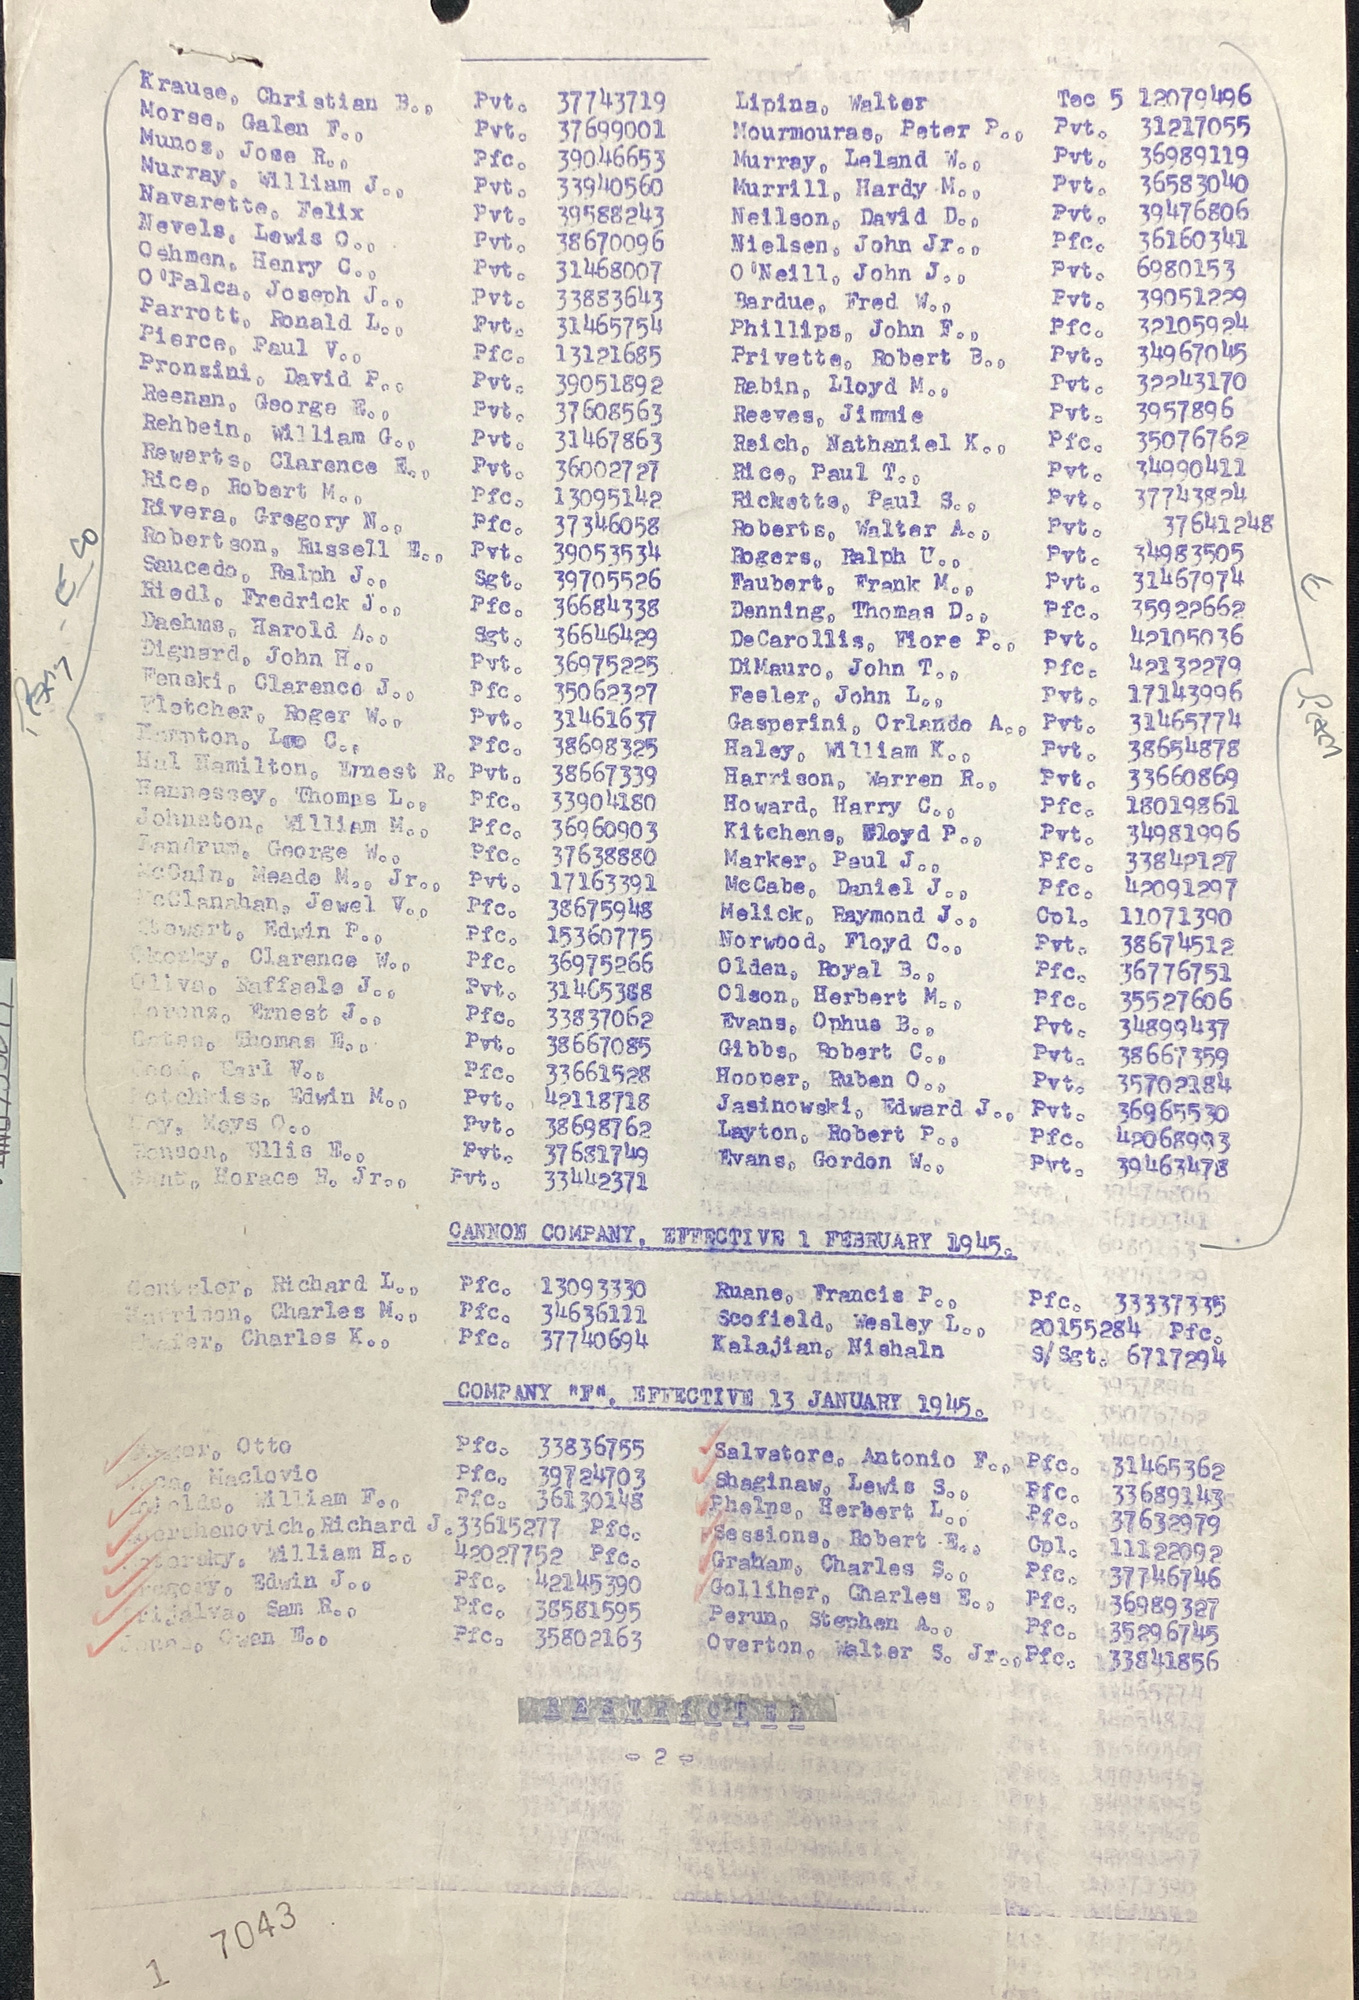 Krause, Christian B., Pvt. 37743719 Lipina, Walter Tec 5 12079496
Morse, Galen F., Pvt. 37699001 Mourmouras, Peter P., Pvt. 31217055
Munos, Jose R., Pfc. 39046653 Murray, Leland W., Pvt. 36989119
Murray, William J., Pvt. 33940560 Murrill, Hardy M., Pvt. 36583040
Navarette, Felix Pvt. 39588243 Neilson, David D., Pvt. 39476806
Nevels, Lewis O., Pvt. 38670096 Nielsen, John Jr., Pfc. 36160341
Oehmen, Henry C., Pvt. 31468007 O'Neill, John J., Pvt. 6980153
O'Palca, Joseph J., Pvt. 33883643 Bardue, Fred W., Pvt. 39051229
Parrott, Ronald L., Pvt. 31465754 Phillips, John F., Pfc. 32105924
Pierce, Paul V., Pfc. 13121685 Privette, Robert B., Pvt. 34967045
Pronzini, David P., Pvt. 39051892 Rabin, Lloyd M., Pvt. 32243170
Reenan, George E., Pvt. 37608563 Reeves, Jimmie Pvt. 3957896
Rehbein, William G., Pvt. 31467863 Reich, Nathaniel K., Pfc. 35076762
Rewerts, Clarence E., Pvt. 36002727 Rice, Paul T., Pvt. 34990411
Rice, Robert M., Pfc. 13095142 Ricketts, Paul S., Pvt. 37743824
Rivera, Gregory N., Pfc. 37346058 Roberts, Walter A., Pvt. 37641248
Robertson, Russell E., Pvt. 39053534 Rogers, Ralph U., Pvt. 34983505
Saucedo, Ralph J., Sgt. 39705526 Faubert, Frank M., Pvt. 31467974
Riedl, Fredrick J., Pfc. 36684338 Denning, Thomas D., Pfc. 35922662
Daehms, Harold A., Sgt. 36646429 DeCarollis, Fiore P., Pvt. 42105036
Dignard, John H., Pvt. 36975225 DiMauro, John T., Pfc. 42132279
Fenski, Clarence J., Pfc. 35062327 Fesler, John L., Pvt. 17143996
Fletcher, Roger W., Pvt. 31461637 Gasperini, Orlando A., Pvt. 31465774
Hampton, Lee C., Pfc. 38698325 Haley, William K., Pvt. 38654878
Hal Hamilton, Ernest R. Pvt. 38667339 Harrison, Warren R., Pvt. 33660869
Hannessey, Thomas L., Pfc. 33904180 Howard, Harry C., Pfc. 18019861
Johnston, William M., Pfc. 36960903 Kitchens, Floyd P., Pvt. 34981996
Landrum, George W., Pfc. 37638880 Marker, Paul J., Pfc. 33842127
McCain, Meade M., Jr., Pvt. 17163391 McCabe, Daniel J., Pfc. 42091297
McClanahan, Jewel V., Pfc. 38675948 Melick, Raymond J., Col. 11071390
Stewart, Edwin P., Pfc. 15360775 Norwood, Floyd C., Pvt. 38674512
Clarence W., Pfc. 36975266 Olden, Royal B., Pfc. 36776751
Oliva, Raffaele J., Pvt. 31465388 Olson, Herbert M., Pfc. 35527606
Lorenz, Ernest J., Pfc. 33837062 Evans, Ophus B., Pvt. 34899437
Thomas E., Pvt. 38667085 Gibbs, Robert C., Pvt. 38667359
Earl V., Pfc. 33661528 Hooper, Ruben O., Pvt. 35702184
Hotchkiss, Edwin M., Pvt. 42118718 Jasinowski, Edward J., Pvt. 36965530
Mays O., Pvt. 38698762 Layton, Robert P., Pfc. 42068993
Ellis E., Pvt. 37681749 Evans, Gordon W., Pvt. 39463478
Horace H. Jr., Pvt. 33442371
CANNON COMPANY, EFFECTIVE 1 FEBRUARY 1945.
Richard L., Pfc. 13093330 Ruane, Francis P., Pfc. 33337335
Harrison, Charles M., Pfc. 34636111 Scofield, Wesley L., 20155284 Pfc.
Charles K., Pfc. 37740694 Kalajian, Nishaln S/Sgt. 6717294
COMPANY "F", EFFECTIVE 13 JANUARY 1945.
Otto Pfc. 33836755 Salvatore, Antonio F., Pfc. 31465362
Maclovio Pfc. 39724703 Shaginaw, Lewis S., Pfc. 33689143
William F., Pfc. 36130148 Phelps, Herbert L., Pfc. 37632979
Richard J. 33615277 Pfc. Sessions, Robert E., Cpl. 11122092
William H., 42027752 Pfc. Graham, Charles S., Pfc. 37746746
Gregory, Edwin J., Pfc. 42145390 Golliher, Charles E., Pfc. 36989327
Grijalva, Sam R., Pfc. 38581595 Perun, Stephen A., Pfc. 35296745
Owen E., Pfc. 35802163 Overton, Walter S. Jr., Pfc. 33841856
RESTRICTED
- 2 -
1 7043